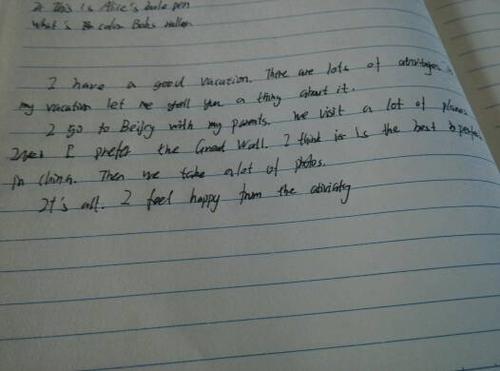 It This is Alice's pen
What's color Bob's
I have a good vacation. There are lots of in
my vacation let me tell you a thing about it.
I go to with my parents. We visit a lot of places
I prefer the Great Wall. I think is the best
in China. Then we take a lot of photos.
It's all. I feel happy from the